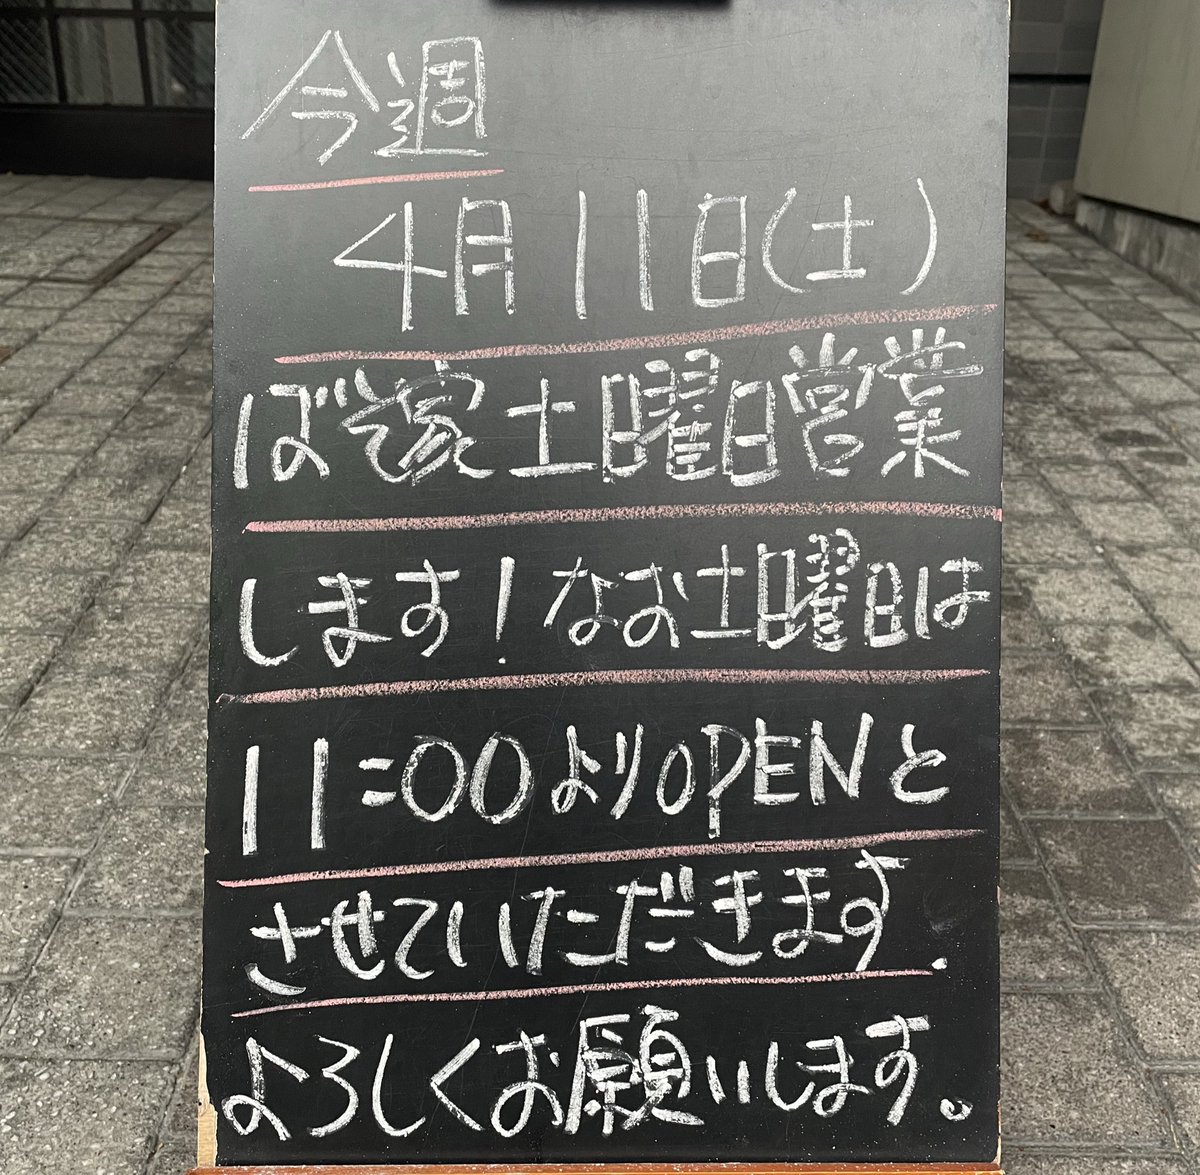 今週
4月11日(土)
土曜日営業
します!なお土曜日は
11:00よりOPENと
させていただきます.
よろしくお願いします。